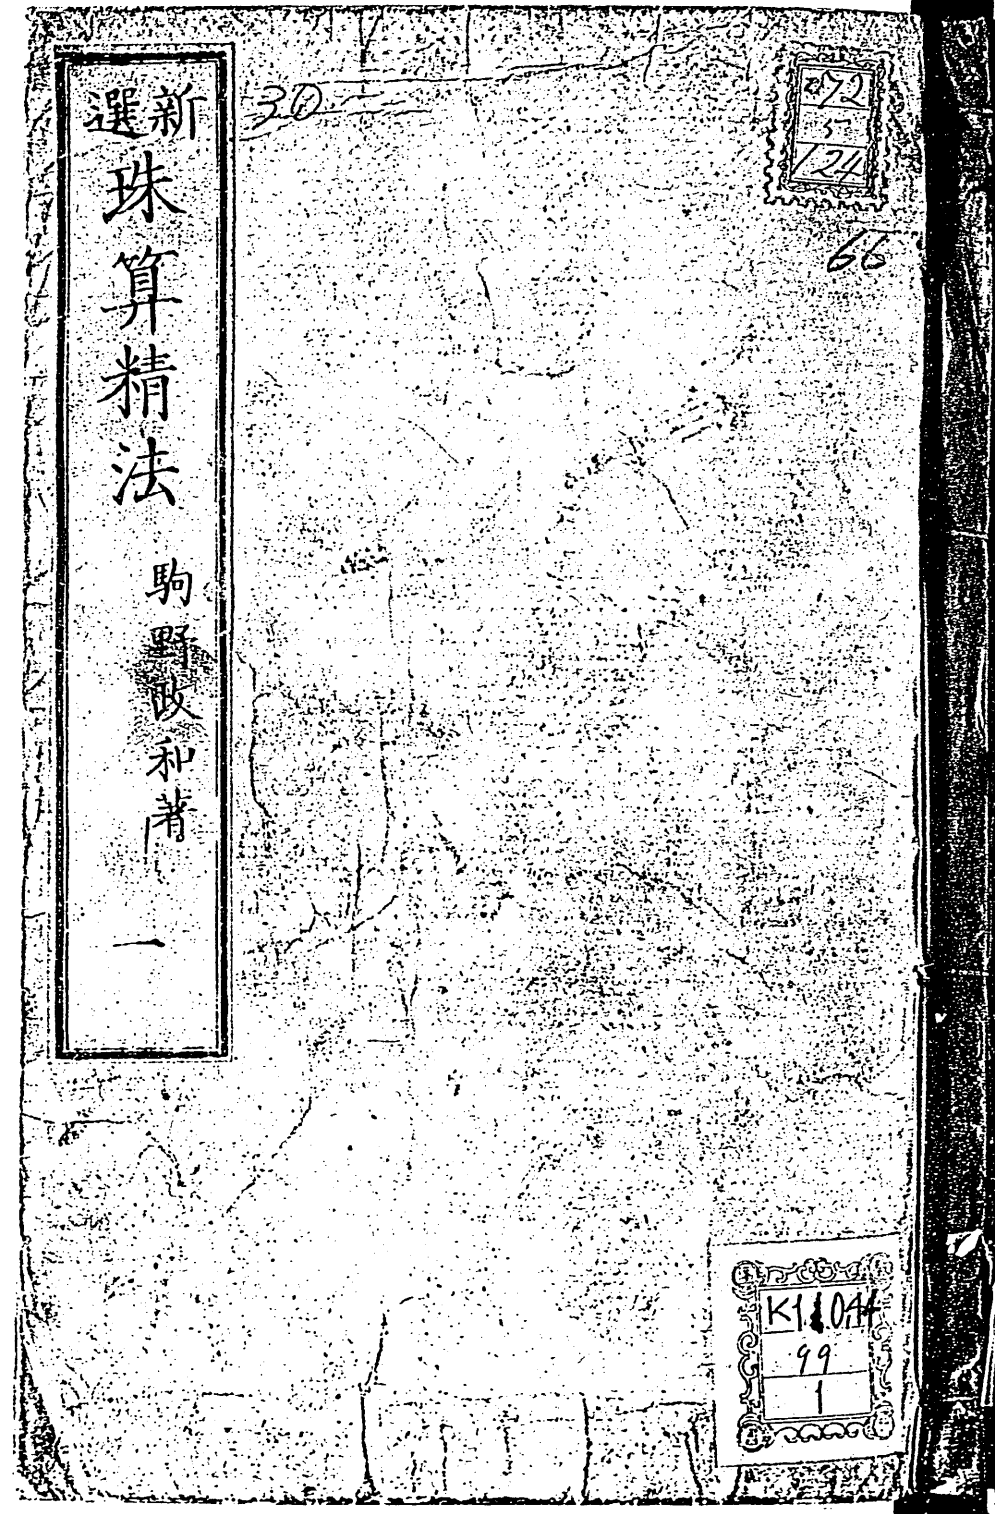 新選珠算精法 駒野政和著 一
30
272
5
124
66
K11.0,44
99
1